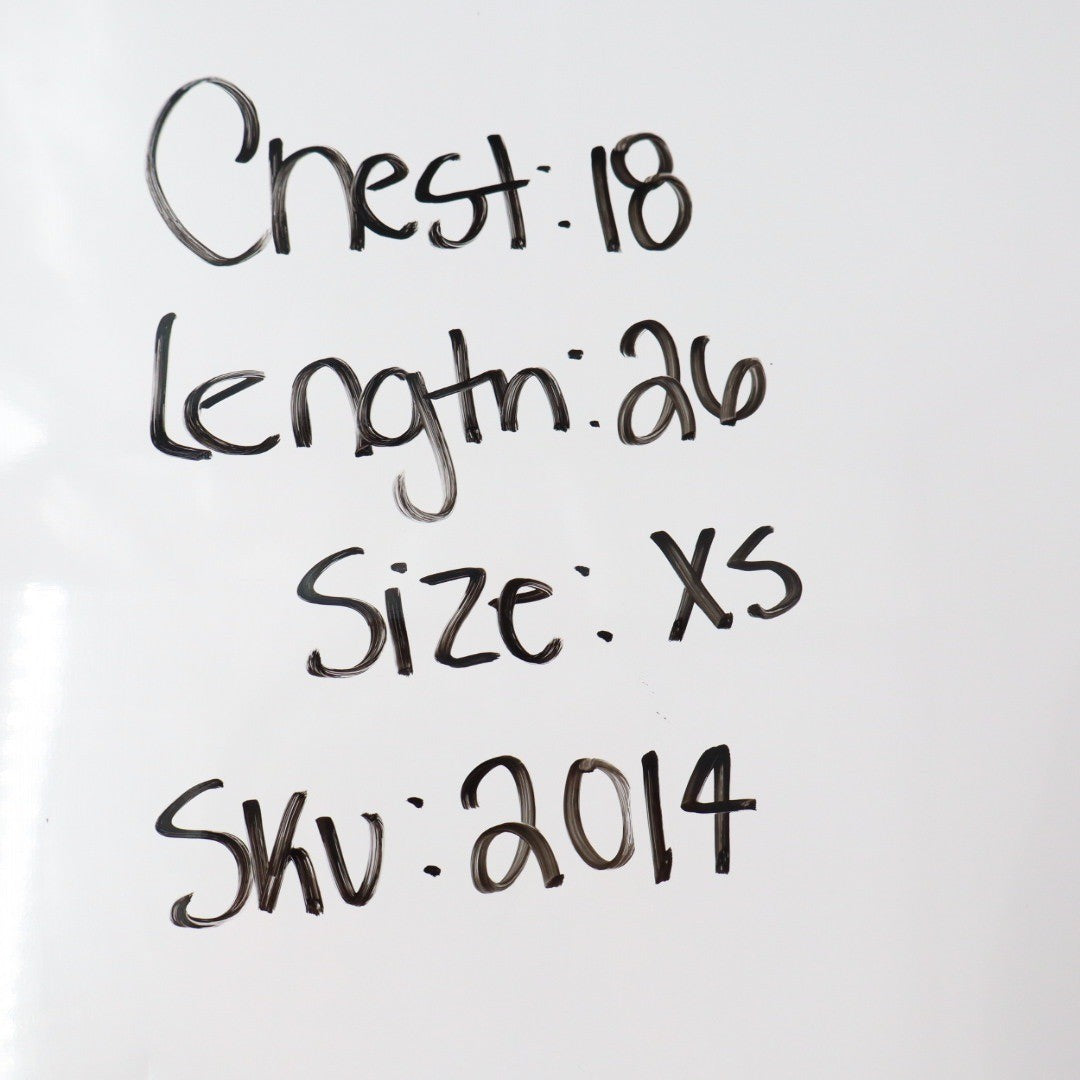 Chest: 18
Length: 26
Size: XS
SKU: 2014